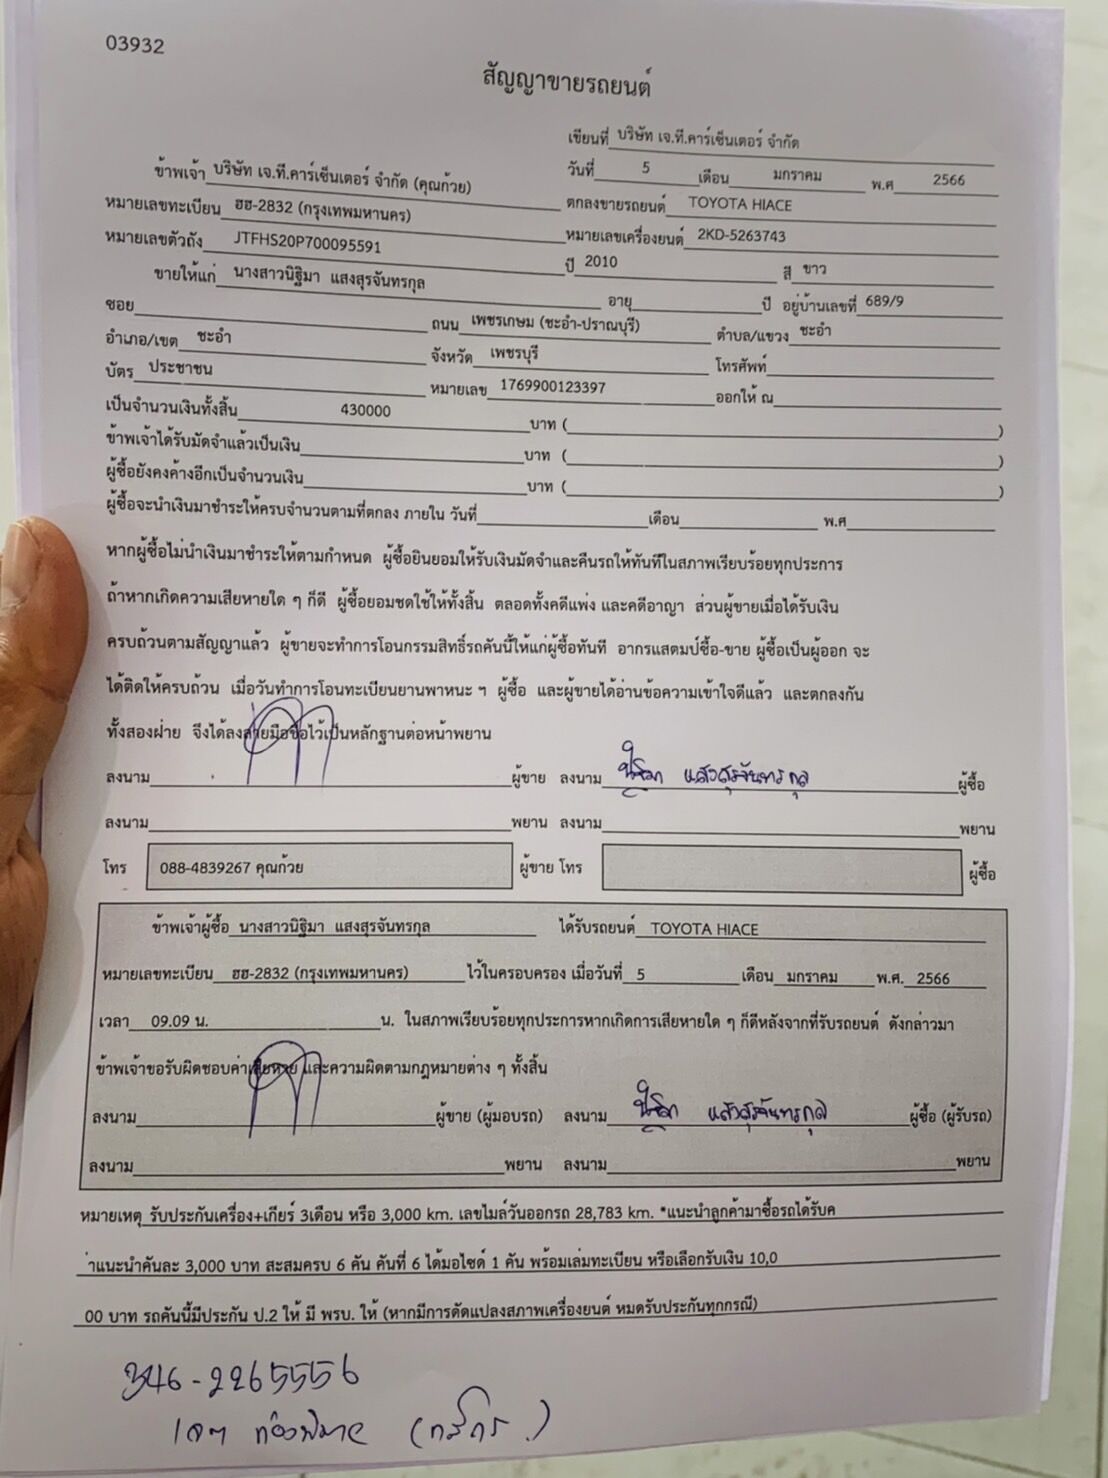 03932
สัญญาขายรถยนต์
เขียนที่ บริษัท เจ.ที.คาร์เซ็นเตอร์ จำกัด
วันที่ 5 เดือน มกราคม พ.ศ 2566
ข้าพเจ้า บริษัท เจ.ที.คาร์เซ็นเตอร์ จำกัด (คุณก้วย)
ตกลงขายรถยนต์ TOYOTA HIACE
หมายเลขทะเบียน ฮฮ-2832 (กรุงเทพมหานคร)
หมายเลขเครื่องยนต์ 2KD-5263743
หมายเลขตัวถัง JTFHS20P700095591
ปี 2010 สี ขาว
ขายให้แก่ นางสาวนิฐิมา แสงสุรจันทรกุล อายุ ปี อยู่บ้านเลขที่ 689/9
ซอย ถนน เพชรเกษม (ชะอำ-ปราณบุรี) ตำบล/แขวง ชะอำ
อำเภอ/เขต ชะอำ จังหวัด เพชรบุรี โทรศัพท์
บัตร ประชาชน หมายเลข 1769900123397 ออกให้ ณ
เป็นจำนวนเงินทั้งสิ้น 430000 บาท ( )
ข้าพเจ้าได้รับมัดจำแล้วเป็นเงิน บาท ( )
ผู้ซื้อยังคงค้างอีกเป็นจำนวนเงิน บาท ( )
ผู้ซื้อจะนำเงินมาชำระให้ครบจำนวนตามที่ตกลง ภายใน วันที่ เดือน พ.ศ
หากผู้ซื้อไม่นำเงินมาชำระให้ตามกำหนด ผู้ซื้อยินยอมให้รับเงินมัดจำและคืนรถให้ทันทีในสภาพเรียบร้อยทุกประการ
ถ้าหากเกิดความเสียหายใด ๆ ก็ดี ผู้ซื้อยอมชดใช้ให้ทั้งสิ้น ตลอดทั้งคดีแพ่ง และคดีอาญา ส่วนผู้ขายเมื่อได้รับเงิน
ครบถ้วนตามสัญญาแล้ว ผู้ขายจะทำการโอนกรรมสิทธิ์รถคันนี้ให้แก่ผู้ซื้อทันที อากรแสตมป์ซื้อ-ขาย ผู้ซื้อเป็นผู้ออก จะ
ได้ติดให้ครบถ้วน เมื่อวันทำการโอนทะเบียนยานพาหนะ ฯ ผู้ซื้อ และผู้ขายได้อ่านข้อความเข้าใจดีแล้ว และตกลงกัน
ทั้งสองฝ่าย จึงได้ลงลายมือชื่อไว้เป็นหลักฐานต่อหน้าพยาน
ลงนาม ผู้ขาย ลงนาม นิฐิมา แสงสุรจันทรกุล ผู้ซื้อ
ลงนาม พยาน ลงนาม พยาน
โทร 088-4839267 คุณก้วย ผู้ขาย โทร ผู้ซื้อ
ข้าพเจ้าผู้ซื้อ นางสาวนิฐิมา แสงสุรจันทรกุล ได้รับรถยนต์ TOYOTA HIACE
หมายเลขทะเบียน ฮฮ-2832 (กรุงเทพมหานคร) ไว้ในครอบครอง เมื่อวันที่ 5 เดือน มกราคม พ.ศ. 2566
เวลา 09.09 น. น. ในสภาพเรียบร้อยทุกประการหากเกิดการเสียหายใด ๆ ก็ดีหลังจากที่รับรถยนต์ ดังกล่าวมา
ข้าพเจ้าขอรับผิดชอบค่าเสียหาย และความผิดตามกฎหมายต่าง ๆ ทั้งสิ้น
ลงนาม ผู้ขาย (ผู้มอบรถ) ลงนาม นิฐิมา แสงสุรจันทรกุล ผู้ซื้อ (ผู้รับรถ)
ลงนาม พยาน ลงนาม พยาน
หมายเหตุ รับประกันเครื่อง+เกียร์ 3เดือน หรือ 3,000 km. เลขไมล์วันออกรถ 28,783 km. *แนะนำลูกค้ามาซื้อรถได้รับค
่าแนะนำคันละ 3,000 บาท สะสมครบ 6 คัน คันที่ 6 ได้มอไซด์ 1 คัน พร้อมเล่มทะเบียน หรือเลือกรับเงิน 10,0
00 บาท รถคันนี้มีประกัน ป.2 ให้ มี พรบ. ให้ (หากมีการดัดแปลงสภาพเครื่องยนต์ หมดรับประกันทุกกรณี)
-2265556
(กสิกร.)